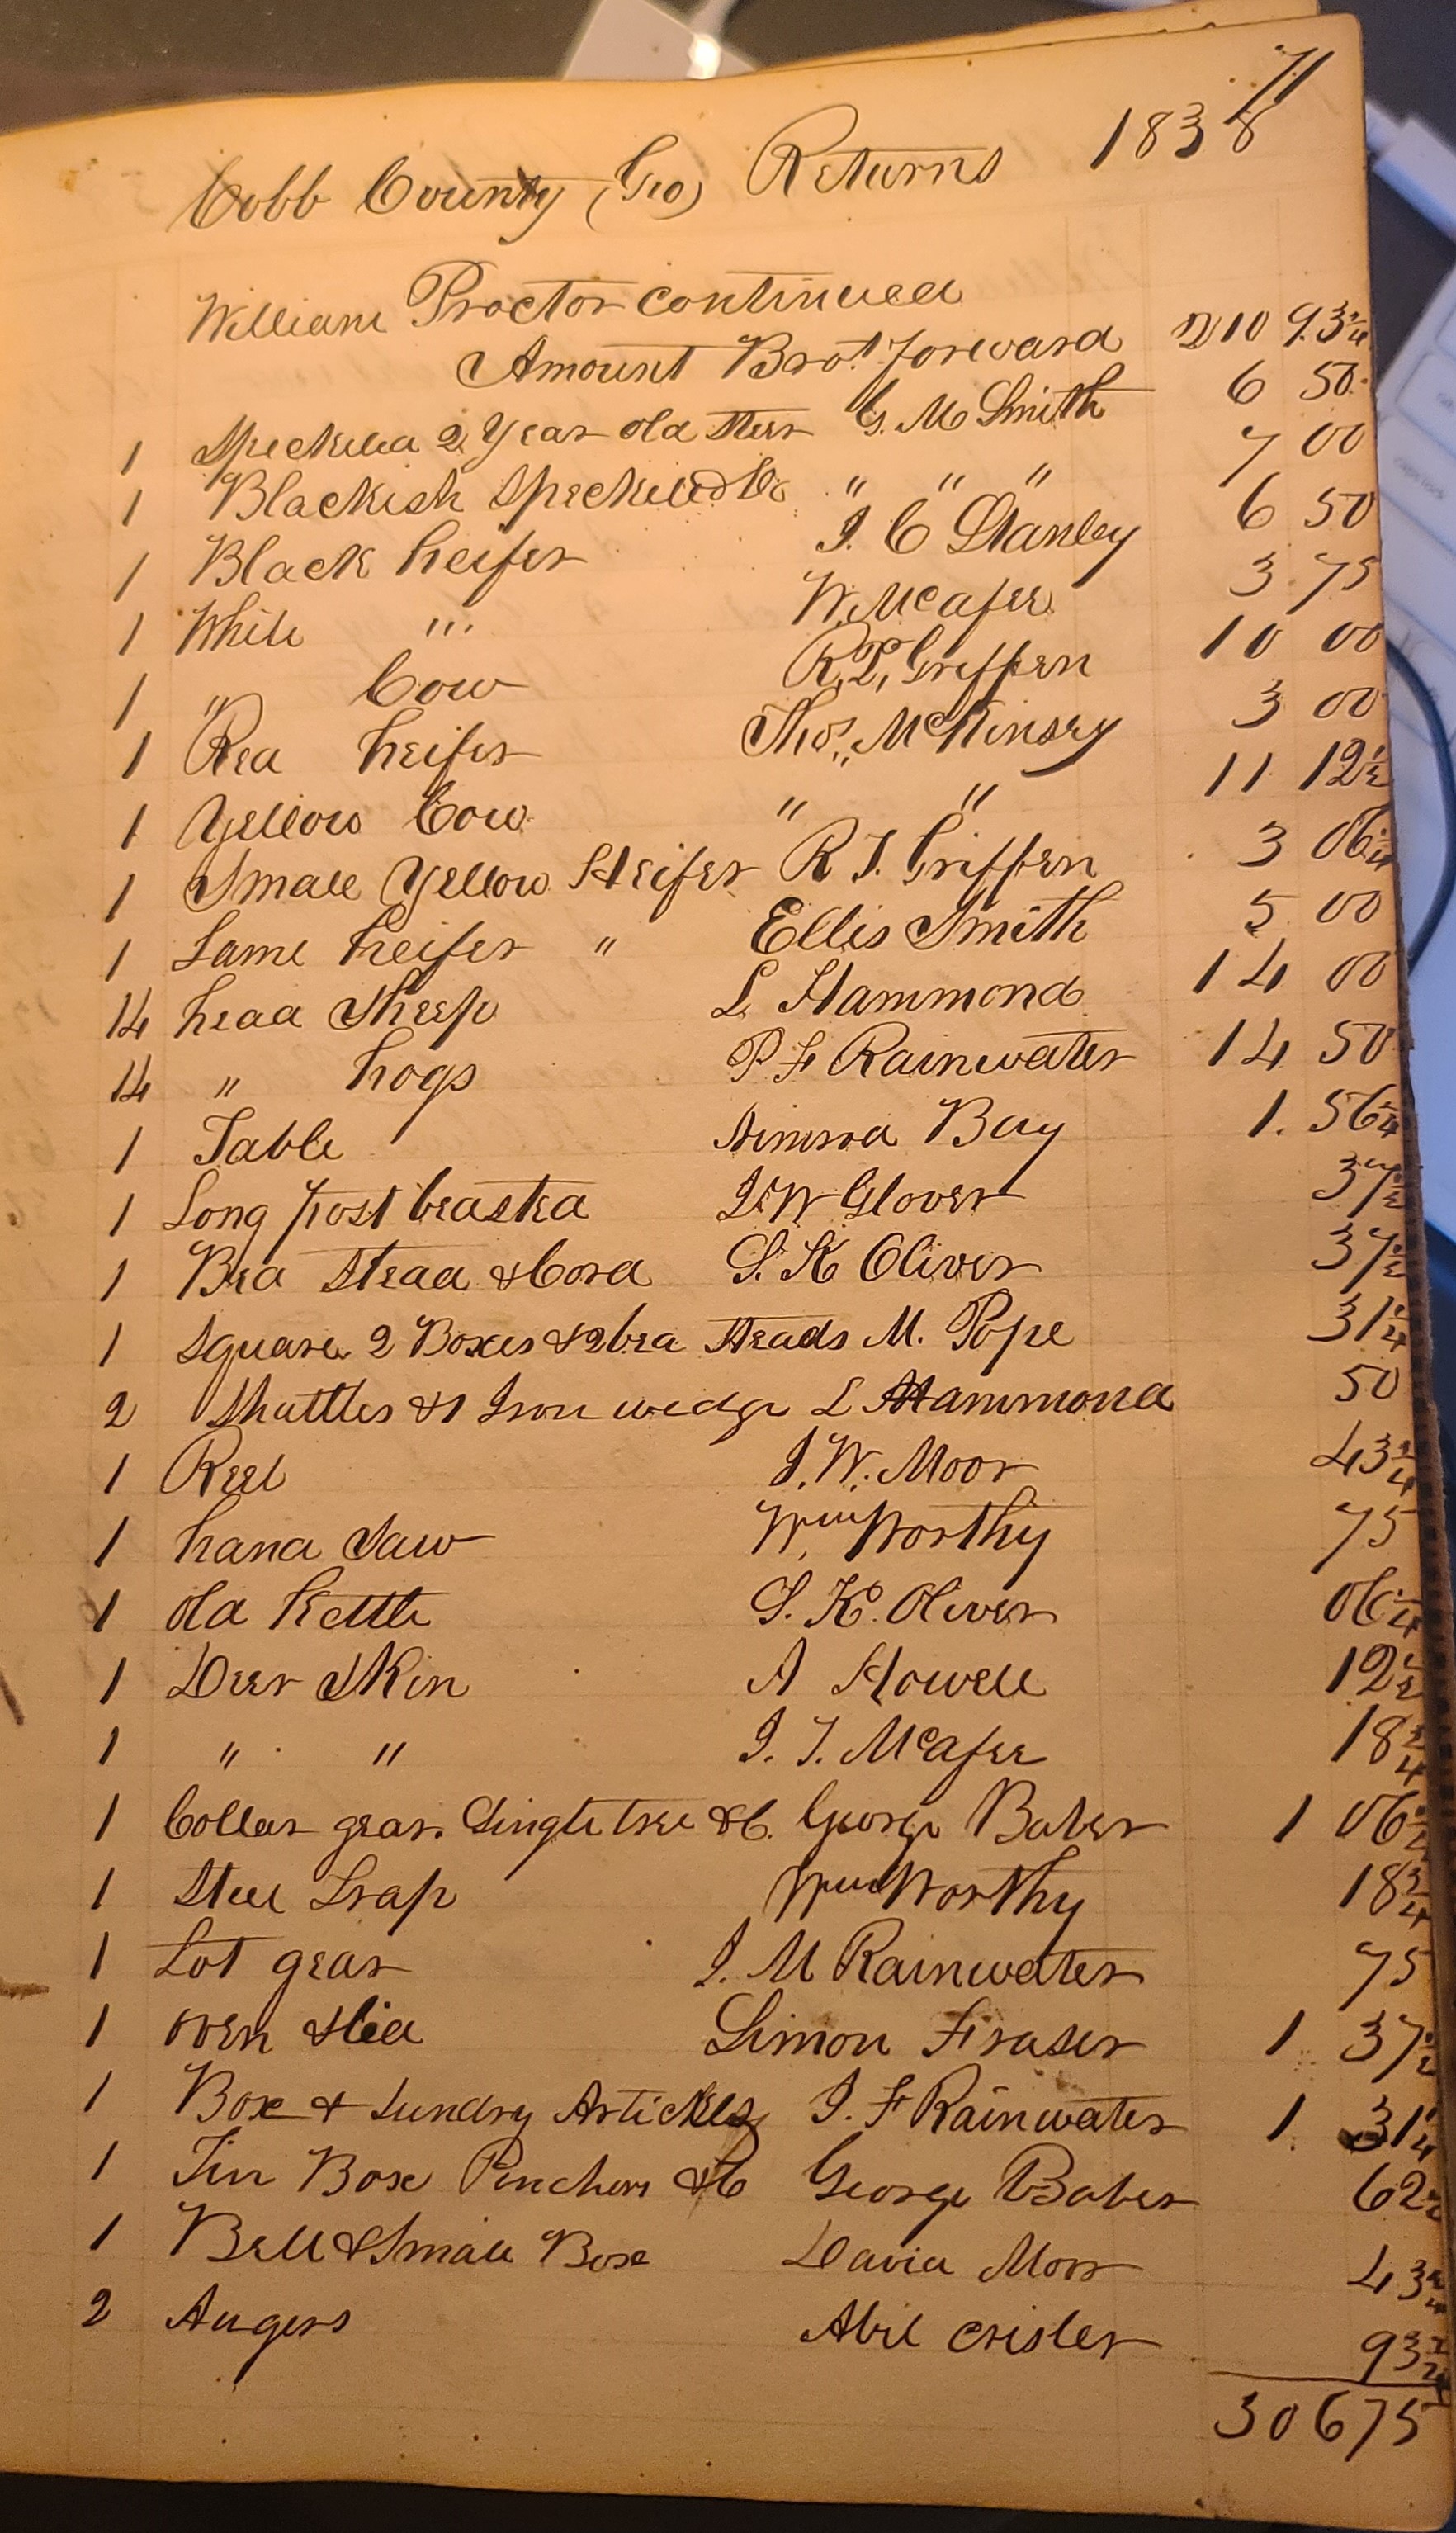 71
Cobb County (Geo) Returns 1838
William Proctor continued
Amount Brot. forward 210 93 3/4
1 Speckled 2 Year old steer G. M Smith 6 50
1 Blackish Speckled Do " " " 7 00
1 Black heifer J. C Stanley 6 50
1 White " W. McAfee 3 75
1 " Cow R. T. Griffen 10 00
1 Red heifer Thos. McKinsey 3 00
1 Yellow Cow " " 11 12 1/2
1 Small Yellow Heifer R T. Griffen 3 06 1/4
1 Lame heifer " Ellis Smith 5 00
14 head Sheep L Hammond 14 00
14 " hogs P F Rainwater 14 50
1 Table Nimrod Bay 1. 56 1/4
1 Long post beasted J W Glover 37 1/2
1 Bed stead & Cord S. K Oliver 37 1/2
1 Square 2 Boxes & 2 bed steads M. Pope 31 1/4
2 Shuttles & 1 Iron wedge L Hammond 50
1 Reel J. W. Moor 43 3/4
1 hand Saw Wm Worthy 75
1 old kettle S. K. Oliver 06 1/4
1 Deer Skin A Howell 12 1/2
1 " " J. T. McAfee 18 3/4
1 Collar gear. Singletree &C. George Baber 1 06
1 Steel Trap Wm Worthy 18 3/4
1 Lot gear J. M Rainwater 75
1 oven & lid Simon Fraser 1 37 1/2
1 Box & Sundry Articles J. F Rainwater 1. 31 1/4
1 Tin Box Pinchers &C George Baber 62 1/2
1 Bell & Small Box David Moor 43 3/4
2 Augers Abel Crisler 93 3/4
306 75